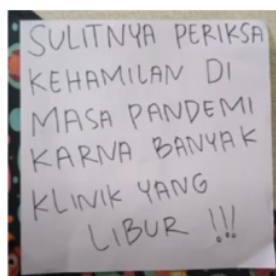 SULITNYA PERIKSA
KEHAMILAN DI
MASA PANDEMI
KARNA BANYAK
KLINIK YANG
LIBUR !!!